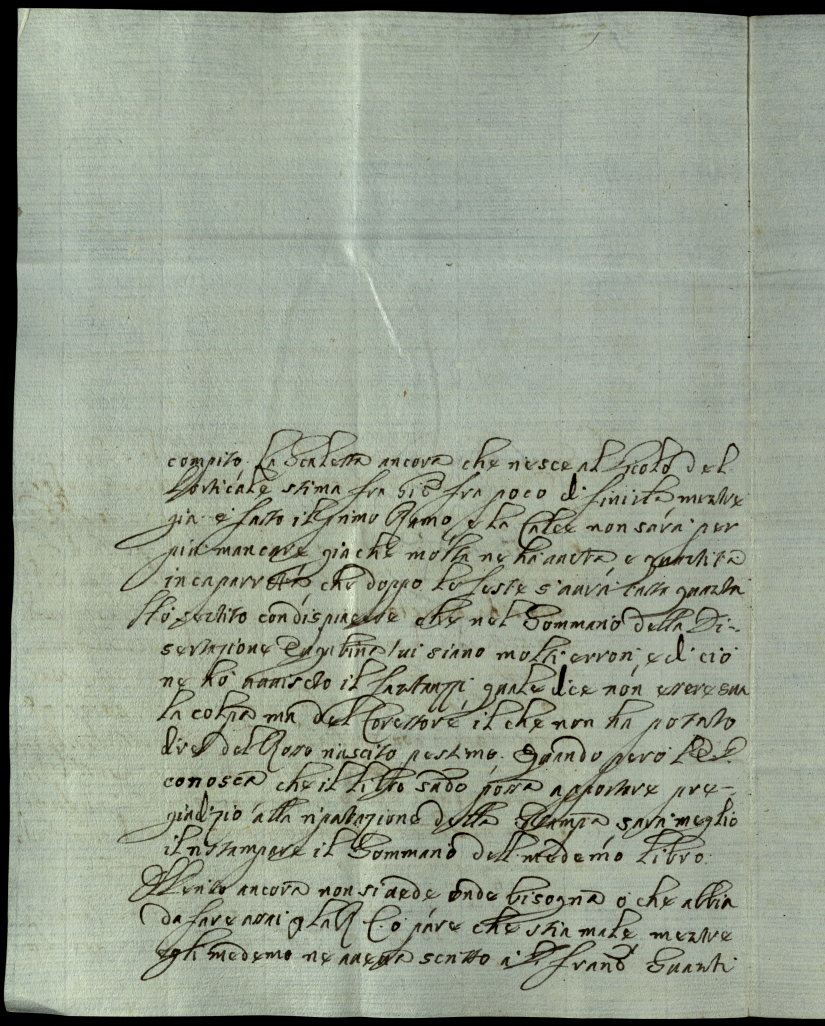 compito. La Scaletta ancora che riesce al del
stima fra poco di finirla mentre
già è fatto il primo Ramo, e la Calce non sarà per
più mancare già che molta ne ha auuta e quantità
incaparrata che doppo le feste s'aurà tutta quanta
Hò sentito con dispiacere che nel Sommario della Di-
sertazione ui siano molti errori, e di ciò
ne hò auuisato il quale dice non essere sua
la colpa ma del Corettore il che non ha potuto
dire del Rosso riuscito pessimo. Quando però
conosca che il libro sudo possa apportare pre-
giudizio alla riputazione della Stampa sarà meglio
il ristampare il Sommario del medemo libro.
ancora non si uede onde bisogna o che abbia
da fare assai o pure che stia male mentre
egli medemo ne aueua scritto al Guanti